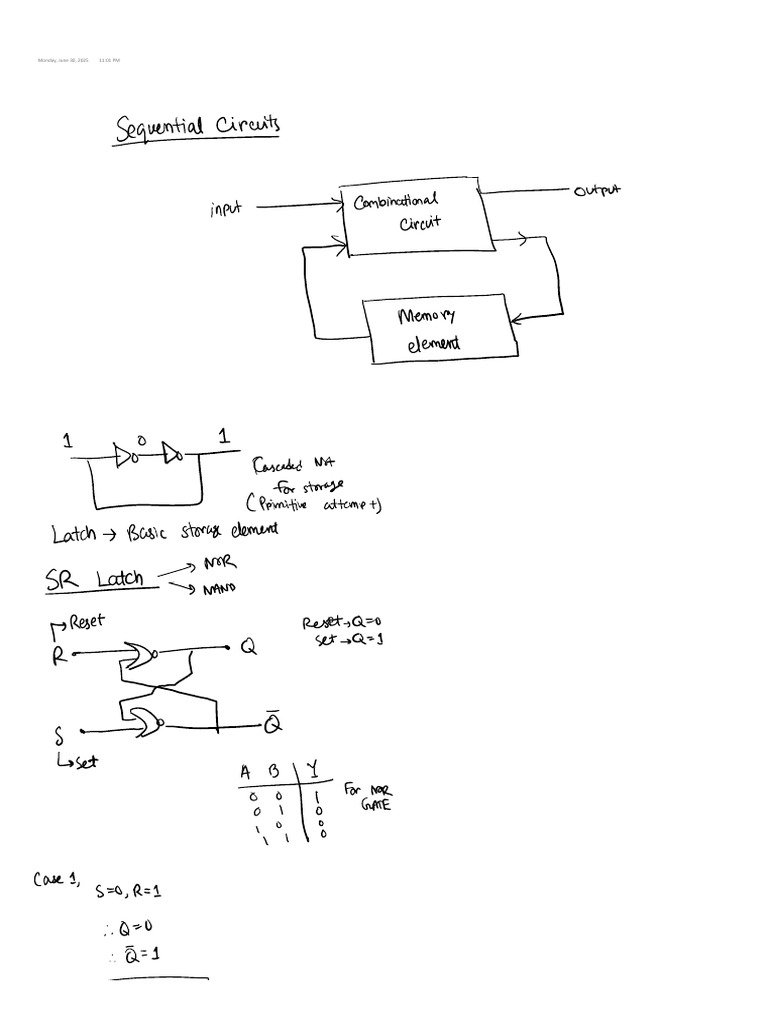 Monday, June 30, 2025 11:01 PM
Sequential Circuits
input
Combinational
Circuit
Output
Memory
element
1 0 1
Cascaded
for storage
(Primitive attempt)
Latch → Basic storage element
SR Latch
NOR
NAND
Reset
R
Q
Reset → Q=0
Set → Q=1
S
Q̅
Set
A B Y
0 0 1
0 1 0
1 0 0
1 1 0
For NOR
GATE
Case 1,
S=0, R=1
∴ Q=0
∴ Q̅=1